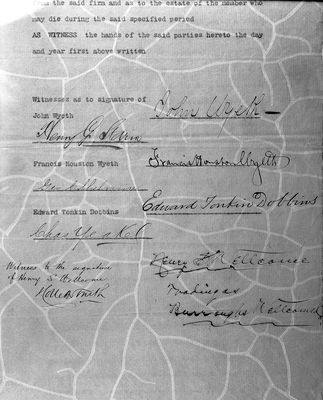 from the said firm and as to the estate of the member who
may die during the said specified period
AS WITNESS the hands of the said parties hereto the day
and year first above written
Witnesses as to signature of
John Wyeth
John Wyeth
Henry G.
Francis Houston Wyeth
Francis Houston Wyeth
Edward Tonkin Dobbins
Edward Tonkin Dobbins
Chas
Henry S. Wellcome
Witness to the signature
of Henry S. Wellcome
Smith
Trading as
Burroughs Wellcome